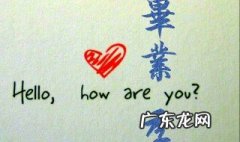 畢業
Hello, how are you?
广东龙网